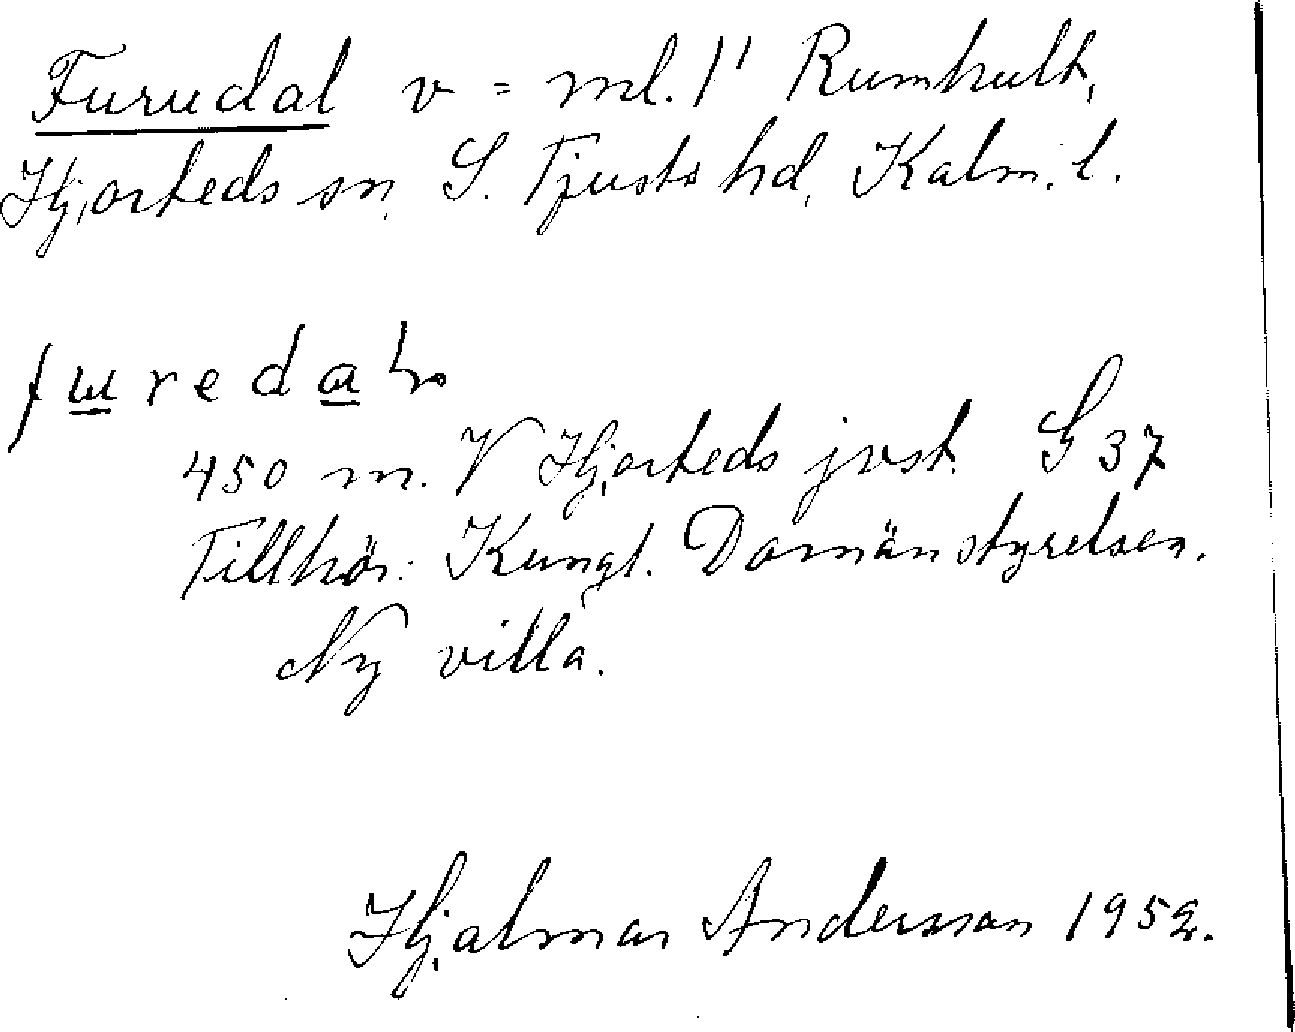 Furudal v = ml. 1¹ Rumhult,
Hjorteds sn, S. Tjusts hd, Kalm. l.
f u r e d a
450 m. V Hjorteds jvst. G 37
Tillhör: Kungl. Domänstyrelsen.
Ny villa.
Hjalmar Andersson 1952.